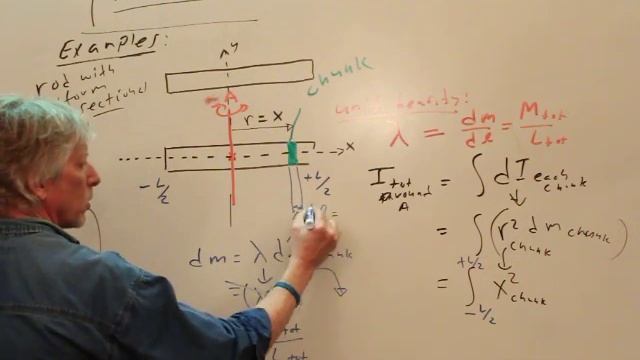 Examples:
rod with
sectional
y
A
chunk
r = x
x
-L/2
+L/2
dm = λ d
unk
unit density:
λ = dm/dl = M tot / L tot
I tot around A = ∫ dI each chunk
= ∫ (r² chunk dm chunk)
= ∫ +L/2 -L/2 x² chunk